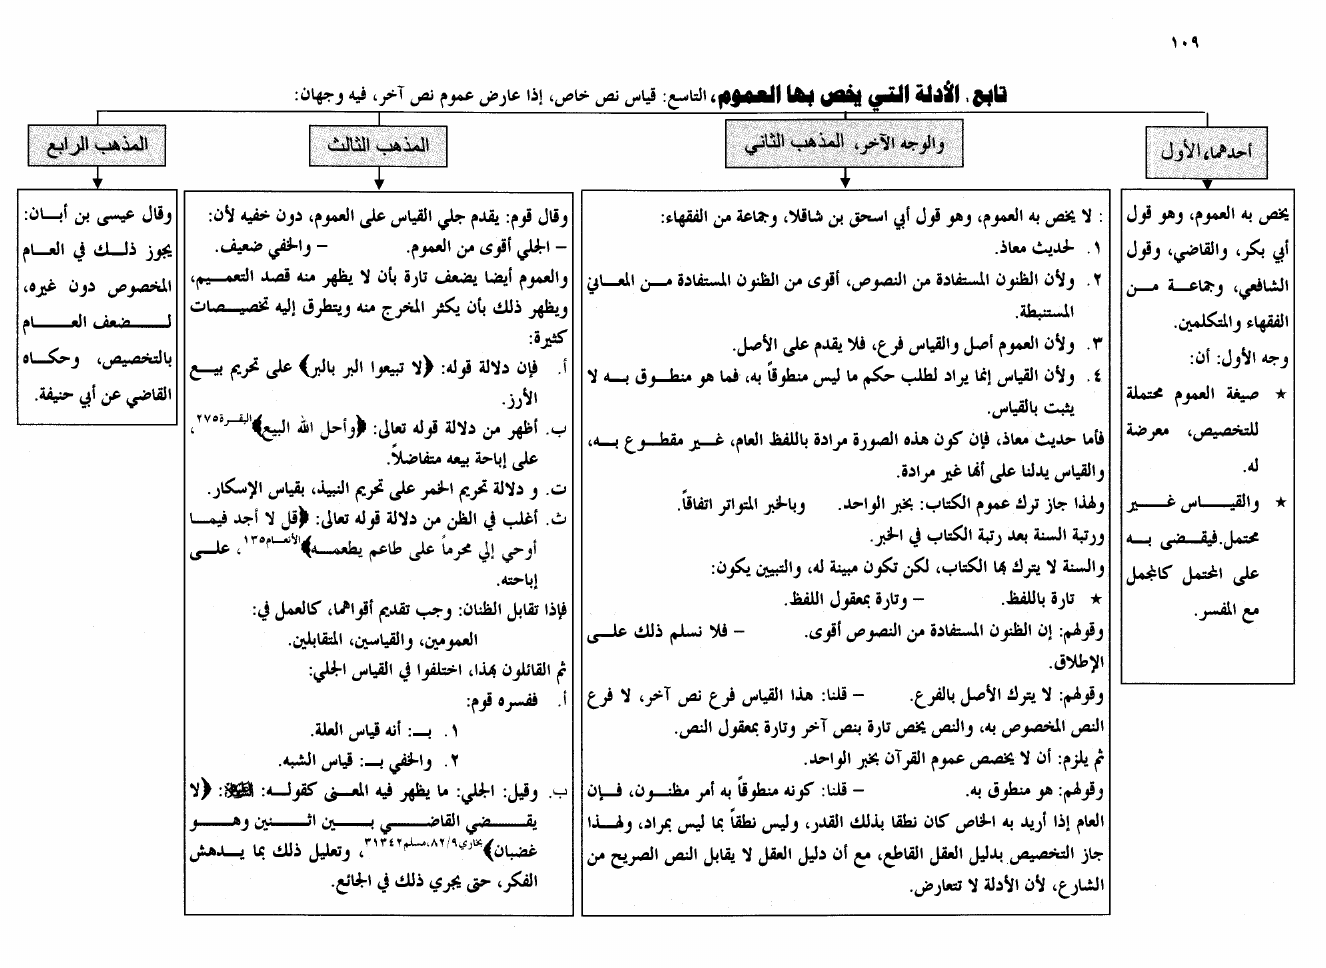 ١٠٩
تابع. الأدلة التي يخص بها العموم، التاسع: قياس نص خاص، إذا عارض عموم نص آخر، فيه وجهان:
أحدهما، الأول
يخص به العموم، وهو قول
أبي بكر، والقاضي، وقول
الشافعي، وجماعة من
الفقهاء والمتكلمين.
وجه الأول: أن:
★ صيغة العموم محتملة
للتخصيص، معرضة
له.
★ والقياس غير
محتمل.فيقضى به
على المحتمل كالمجمل
مع المفسر.
والوجه الآخر، المذهب الثاني
: لا يخص به العموم، وهو قول أبي اسحق بن شاقلا، وجماعة من الفقهاء:
١. لحديث معاذ.
٢. ولأن الظنون المستفادة من النصوص، أقوى من الظنون المستفادة من المعاني
المستنبطة.
٣. ولأن العموم أصل والقياس فرع، فلا يقدم على الأصل.
٤. ولأن القياس إنما يراد لطلب حكم ما ليس منطوقاً به، فما هو منطوق به لا
يثبت بالقياس.
فأما حديث معاذ، فإن كون هذه الصورة مرادة باللفظ العام، غير مقطوع به،
والقياس يدلنا على أنها غير مرادة.
ولهذا جاز ترك عموم الكتاب: بخبر الواحد. وبالخبر المتواتر اتفاقاً.
ورتبة السنة بعد رتبة الكتاب في الخبر.
والسنة لا يترك بها الكتاب، لكن تكون مبينة له، والتبيين يكون:
★ تارة باللفظ. – وتارة بمعقول اللفظ.
وقولهم: إن الظنون المستفادة من النصوص أقوى. – فلا نسلم ذلك على
الإطلاق.
وقولهم: لا يترك الأصل بالفرع. – قلنا: هذا القياس فرع نص آخر، لا فرع
النص المخصوص به، والنص يخص تارة بنص آخر وتارة بمعقول النص.
ثم يلزم: أن لا يخصص عموم القرآن بخبر الواحد.
وقولهم: هو منطوق به. – قلنا: كونه منطوقاً به أمر مظنون، فإن
العام إذا أريد به الخاص كان نطقا بذلك القدر، وليس نطقاً بما ليس بمراد، ولهذا
جاز التخصيص بدليل العقل القاطع، مع أن دليل العقل لا يقابل النص الصريح من
الشارع، لأن الأدلة لا تتعارض.
المذهب الثالث
وقال قوم: يقدم جلي القياس على العموم، دون خفيه لأن:
– الجلي أقوى من العموم. – والخفي ضعيف.
والعموم أيضا يضعف تارة بأن لا يظهر منه قصد التعميم،
ويظهر ذلك بأن يكثر المخرج منه ويتطرق إليه تخصيصات
كثيرة:
أ. فإن دلالة قوله: ﴿لا تبيعوا البر بالبر﴾ على تحريم بيع
الأرز.
ب. أظهر من دلالة قوله تعالى: ﴿وأحل الله البيع﴾البقرة٢٧٥،
على إباحة بيعه متفاضلاً.
ت. و دلالة تحريم الخمر على تحريم النبيذ، بقياس الإسكار.
ث. أغلب في الظن من دلالة قوله تعالى: ﴿قل لا أجد فيما
أوحي إلي محرماً على طاعم يطعمه﴾الأنعام١٣٥، على
إباحته.
فإذا تقابل الظنان: وجب تقديم أقواهما، كالعمل في:
العمومين، والقياسين، المتقابلين.
ثم القائلون بهذا، اختلفوا في القياس الجلي:
أ. ففسره قوم:
١. بـ: أنه قياس العلة.
٢. والخفي بـ: قياس الشبه.
ب. وقيل: الجلي: ما يظهر فيه المعنى كقوله: ﷺ: ﴿لا
يقضي القاضي بين اثنين وهو
غضبان﴾بخاري٨٢/٩،مسلم٣١٣٤٢، وتعليل ذلك بما يدهش
الفكر، حتى يجري ذلك في الجائع.
المذهب الرابع
وقال عيسى بن أبان:
يجوز ذلك في العام
المخصوص دون غيره،
لضعف العام
بالتخصيص، وحكاه
القاضي عن أبي حنيفة.